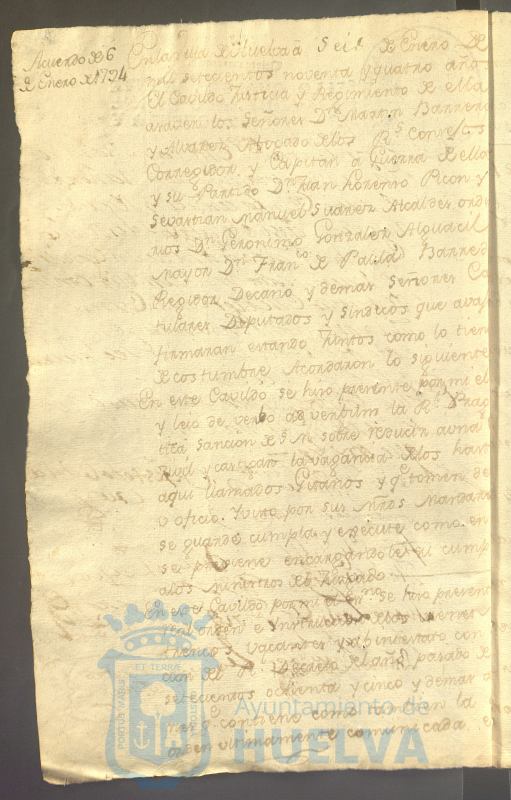 Acuerdo de 6
de Enero de 1794
En la villa de Huelva a Seis de Enero de
mil setecientos noventa y quatro años
El Cavildo Justicia y Regimiento de ella
los Señores Dn Martin Barrera
y Alvarez Abogado de los Rs Consejos
Corregidor y Capitan a Guerra de ella
y su Partido Dn Juan Lorenzo Picon y
Sevastian Manuel Suarez Alcaldes ordi
rios Dn Geronimo Gonzalez Alguacil
mayor Dn Franco de Paula Barrero
Regidor Decano y demas Señores Ca
tulares Deputados y Sindicos que avajo
firmaran estando Juntos como lo tien
de costumbre Acordaron lo siguiente
En este Cavildo se hizo presente por mi el
y leio de verbo ad verbum la Rl Prag
tica Sancion de S. M. sobre reducir a vida
Civil y castigar la vagancia de los hasta
aqui llamados Gitanos y qe tomen
u oficio. Visto por sus Mrds Mandaron
se guarde cumpla y execute como en
se previene encargandole su cump
a los Ministros de Juzgado
En este Cavildo por mi el se hizo presente
orden e Instruccion de los bienes
vacantes y abintestato con
con el Rl Decreto del año pasado de
setecientos ochenta y cinco y demas
contiene como tambien la
orden ultimamente comunicada
PORTUS MARIS
ET TERRÆ
CUSTODIA
Ayuntamiento de
HUELVA